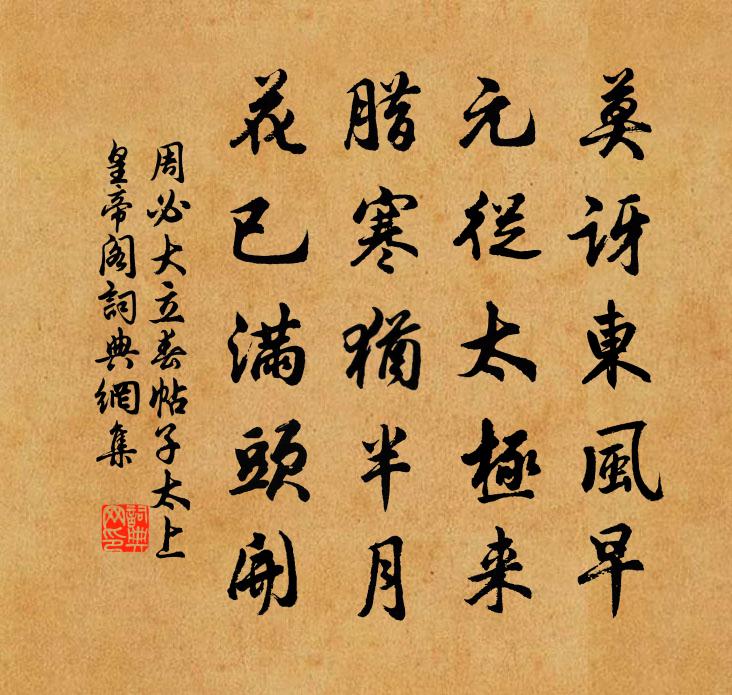 莫訝東風早
元從太極来
腊寒猶半月
花已滿頭開
周必大立春帖子太上
皇帝阁詞典網集
詞典网印